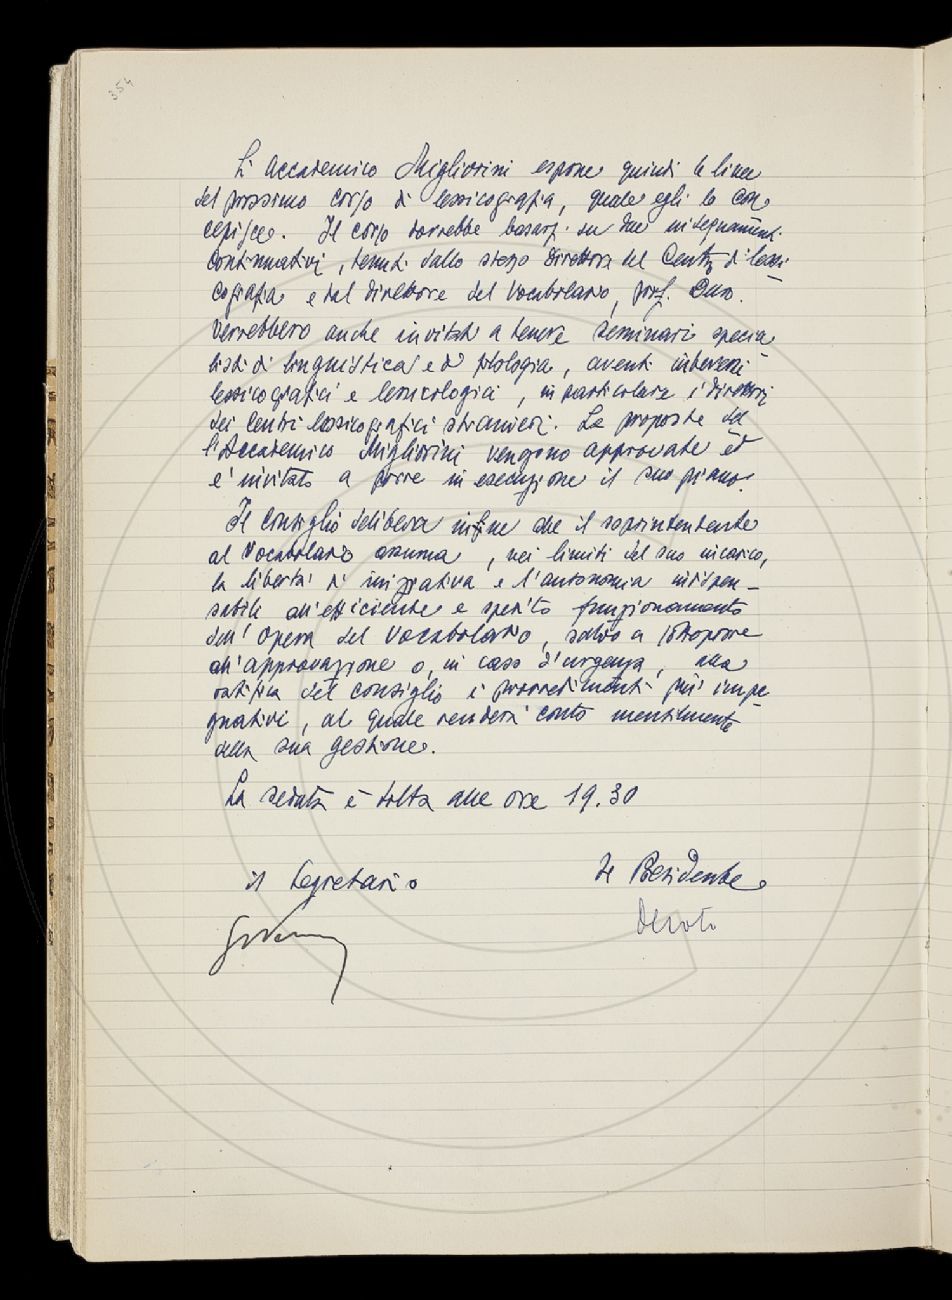 354
L'Accademico Migliorini espone quindi le linee
del prossimo corso di lessicografia, quale egli lo con
cepisce. Il corso dovrebbe basarsi su due insegnamenti
continuativi, tenuti dallo stesso direttore del Centro di lessi
cografia e dal direttore del Vocabolario, prof. Duro.
Verrebbero anche invitati a tenere seminari specia
listi di linguistica e di filologia, aventi interessi
lessicografici e lessicologici, in particolare i direttori
dei centri lessicografici stranieri. Le proposte del
l'Accademico Migliorini vengono approvate ed
e' invitato a porre in esecuzione il suo piano.
Il Consiglio delibera infine che il soprintendente
al Vocabolario assuma, nei limiti del suo incarico,
la libertà di iniziativa e l'autonomia indispen-
sabili all'efficiente e spedito funzionamento
dell'Opera del Vocabolario, salvo a proporre
all'approvazione o, in caso d'urgenza, alla
ratifica del consiglio i provvedimenti più impe
gnativi, al quale renderà conto mensilmente
della sua gestione.
La seduta è tolta alle ore 19.30
il Segretario
Il Presidente
Devoto